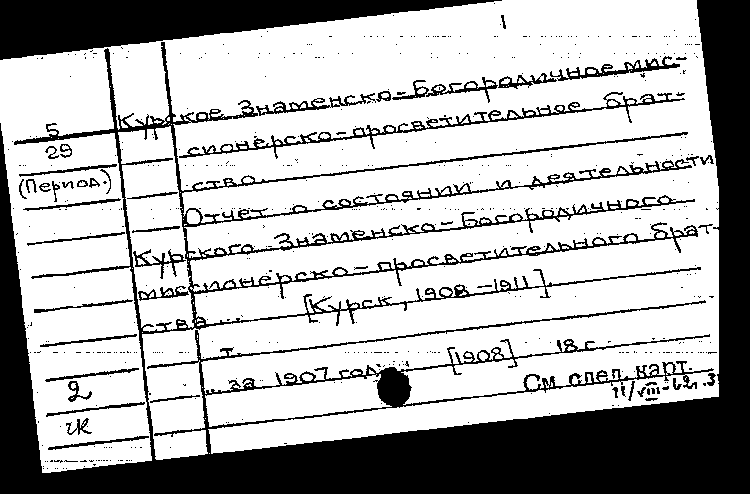 1
5
29
(Период.)
Курское Знаменско-Богородичное мис-
сионерско-просветительное брат-
ство.
Отчет о состоянии и деятельности
Курского Знаменско-Богородичного
миссионерско-просветительного брат-
ства ... [Курск, 1908-1911].
т.
... за 1907 год. [1908] 18 с.
См. след. карт.
2